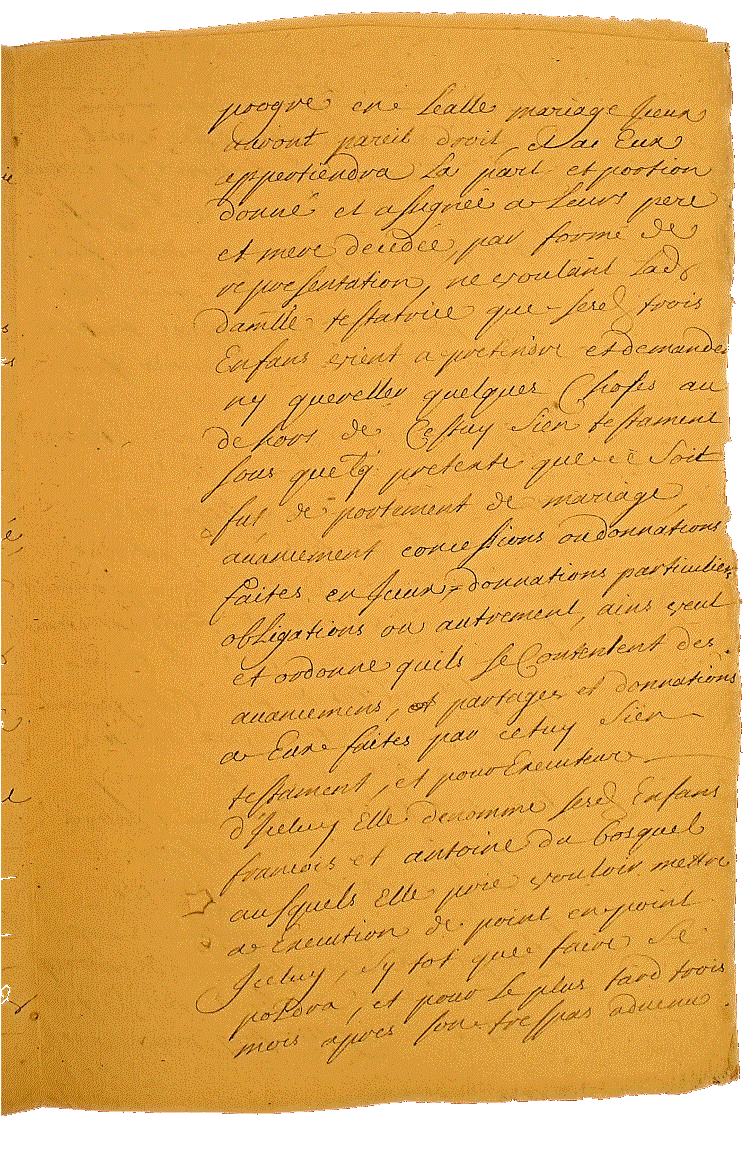 procree en lealle mariage Jceux
auront pareil droit, et a Eux
appertiendra La part et portion
donné et assignée a Leurs pere
et mere decedée, par forme de
representation, ne voulant Lad
damlle testatrice que sesd trois
Enfans vient a pretendre et demander
ny quereller quelques choses au
dehors de Cestuy Sien testament
sous quelq pretexte que ce soit
fut de portement de mariage
auancement concessions ou donnations
faites en Jceux, donnations particulier
obligations ou autrement, ains veut
et ordonne quils se Contentent des
auancemens, et partages et donnations
a Eux faites par cetuy Sien
testament, et pour Executeur
d'Jceluy Elle denomme sesd Enfans
francois et antoine du bosquel
ausquels Elle prie vouloir mettre
a Execution de point en point
Jceluy, sy tot que faire se
poldra, et pour le plus tard trois
mois apres son trespas aduenu